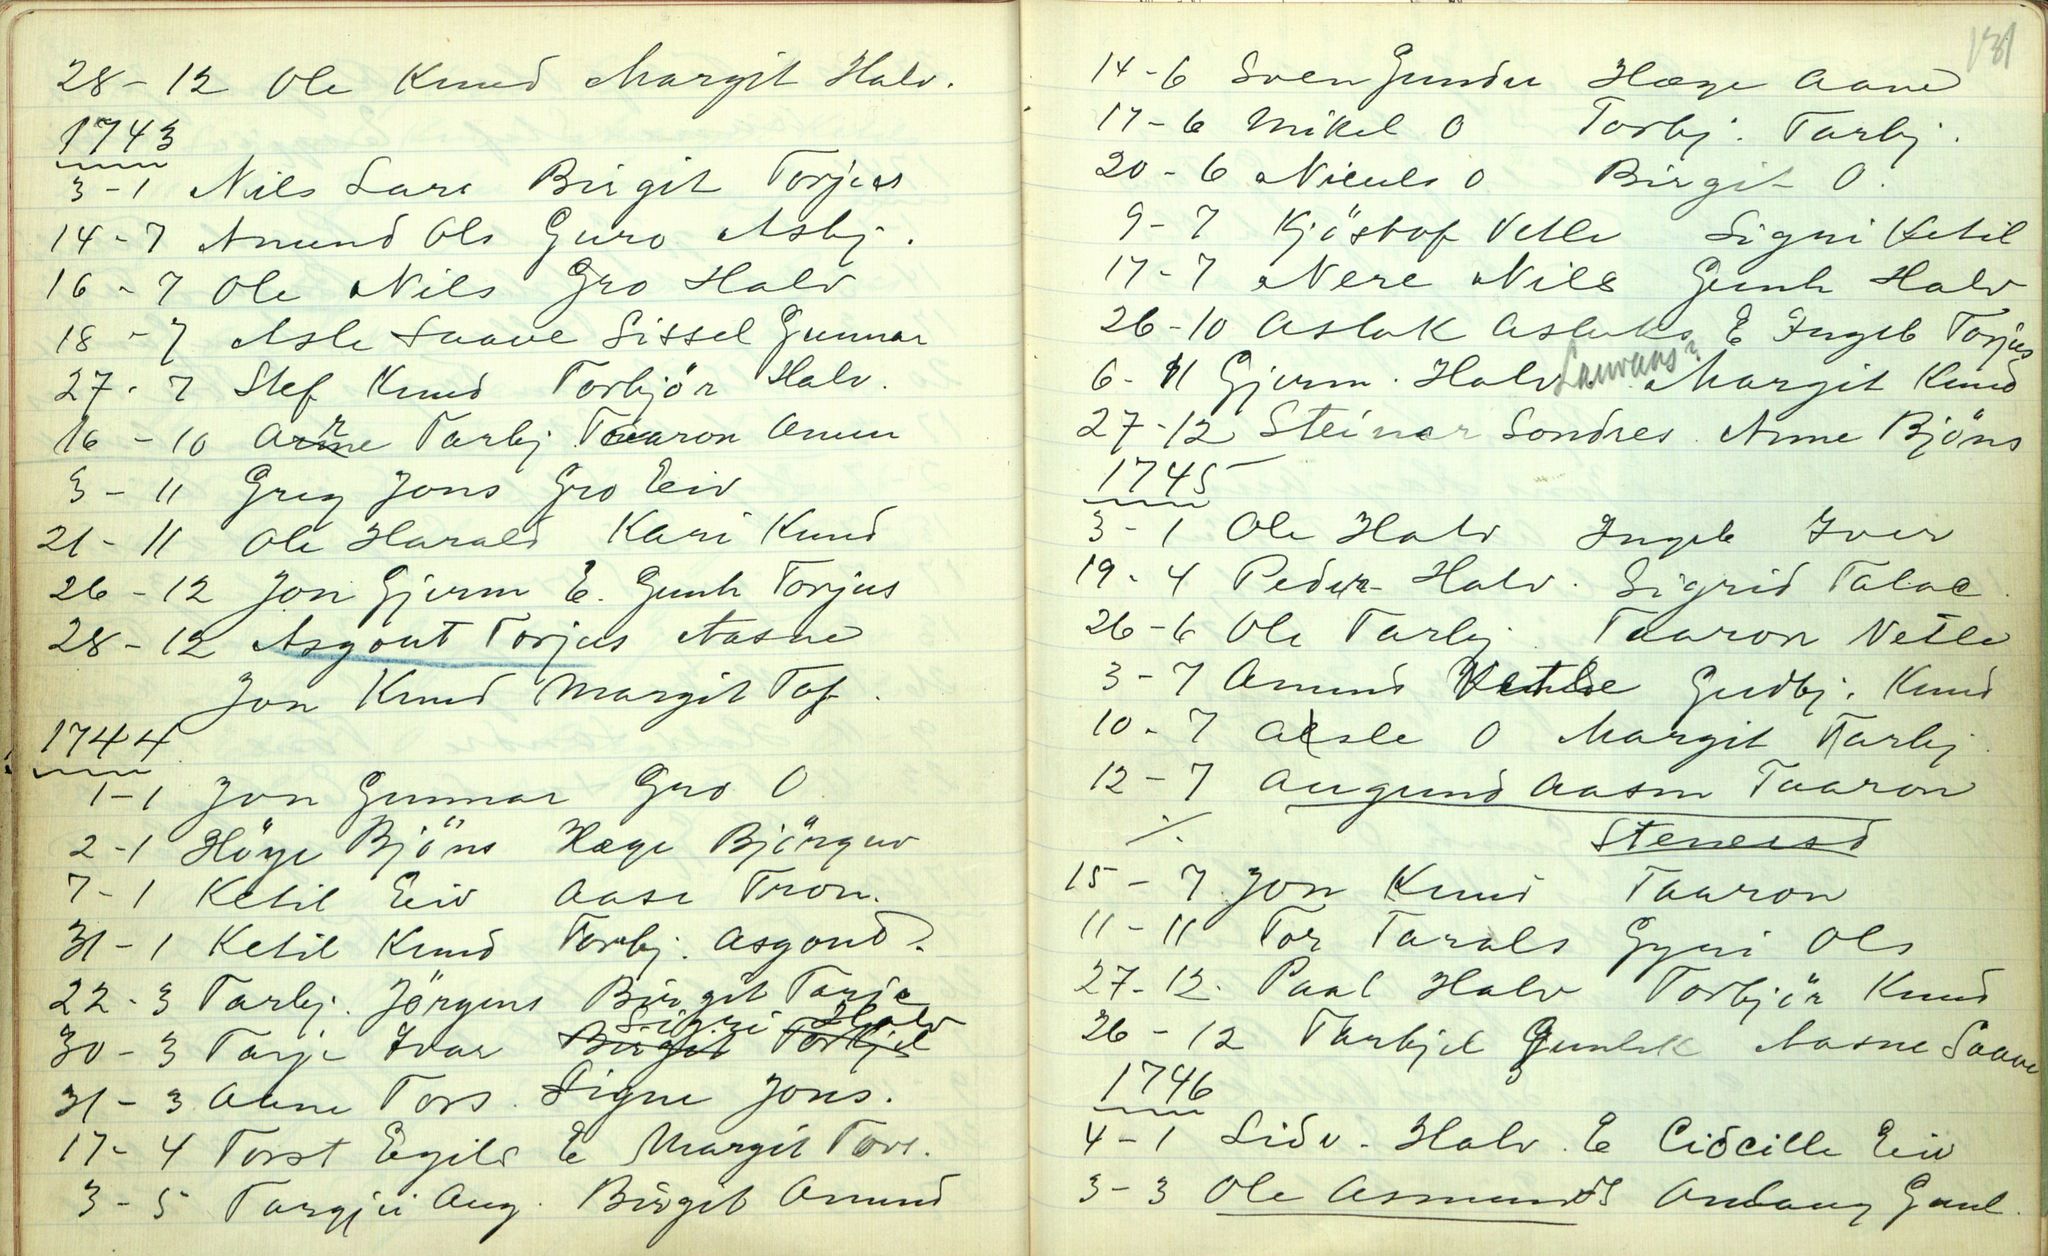 28 - 12 Ole Knud Margit Halv.
1743
3 - 1 Nils Lars Birgit Torjus
14 - 7 Amund Ols Guro Asbj.
16 - 7 Ole Nils Gro Halv
18 - 7 Asle Saave Sissel Gunnar
27 - 7 Stef Knud Torbjör Halv.
16 - 10 Arne Tarbj Taaron Amun
3 - 11 Greg Jons Gro Eiv
21 - 11 Ole Harald Kari Knud
26 - 12 Jon Gjerm E. Gunh Torjus
28 - 12 Asgout Torjus Aasne
Jon Knud Margit Tof.
1744
1 - 1 Jon Gunnar Gro O
2 - 1 Höye Bjöns Hæge Björguv
7 - 1 Ketil Eiv Aase Tron.
31 - 1 Ketil Knud Torbj. Asgoud.
22 - 3 Tarbj. Jörgens Birgit Tarje
Signi Halv
30 - 3 Tarje Ivar Birgit Torkjel
31 - 3 Aane Tors. Signe Jons.
17 - 4 Torst Egils E Margit Tove.
3 - 5 Targjei Aug. Birgit Amund
131
14 - 6 Sven Gundu Hæge Aane
17 - 6 Mikel O Torbj. Tarbj.
20 - 6 Niculs O Birgit O.
9 - 7 Kjöstof Vetle Signi Ketil
17 - 7 Nere Nils Gunh Halv
26 - 10 Aslak Aslaks E Ingeb Torjus
Lauraas?
6 - 11 Gjerm. Halv Margit Knud
27 - 12 Steinar Sondres. Anne Bjöns
1745
3 - 1 Ole Halv Ingeb Iver
19 - 4 Peder Halv. Sigrid Talac.
26 - 6 Ole Tarbj. Taaron Vetle
3 - 7 Amund Gudbj. Knud
10 - 7 Aasle O Margit Tarbj.
12 - 7 Augund Aasm Taaron
./. Stenersd
15 - 7 Jon Knud Taaron
11 - 11 Tor Tarals Gyri Ols
27 - 12. Paal Halv Torbjör Knud
26 - 12 Tarbjel Gunlek Aasne Saave
1746
4 - 1 Sidv. Halv. E Cidcille Eiv
3 - 3 Ole Asmunds Andaug Gunl.